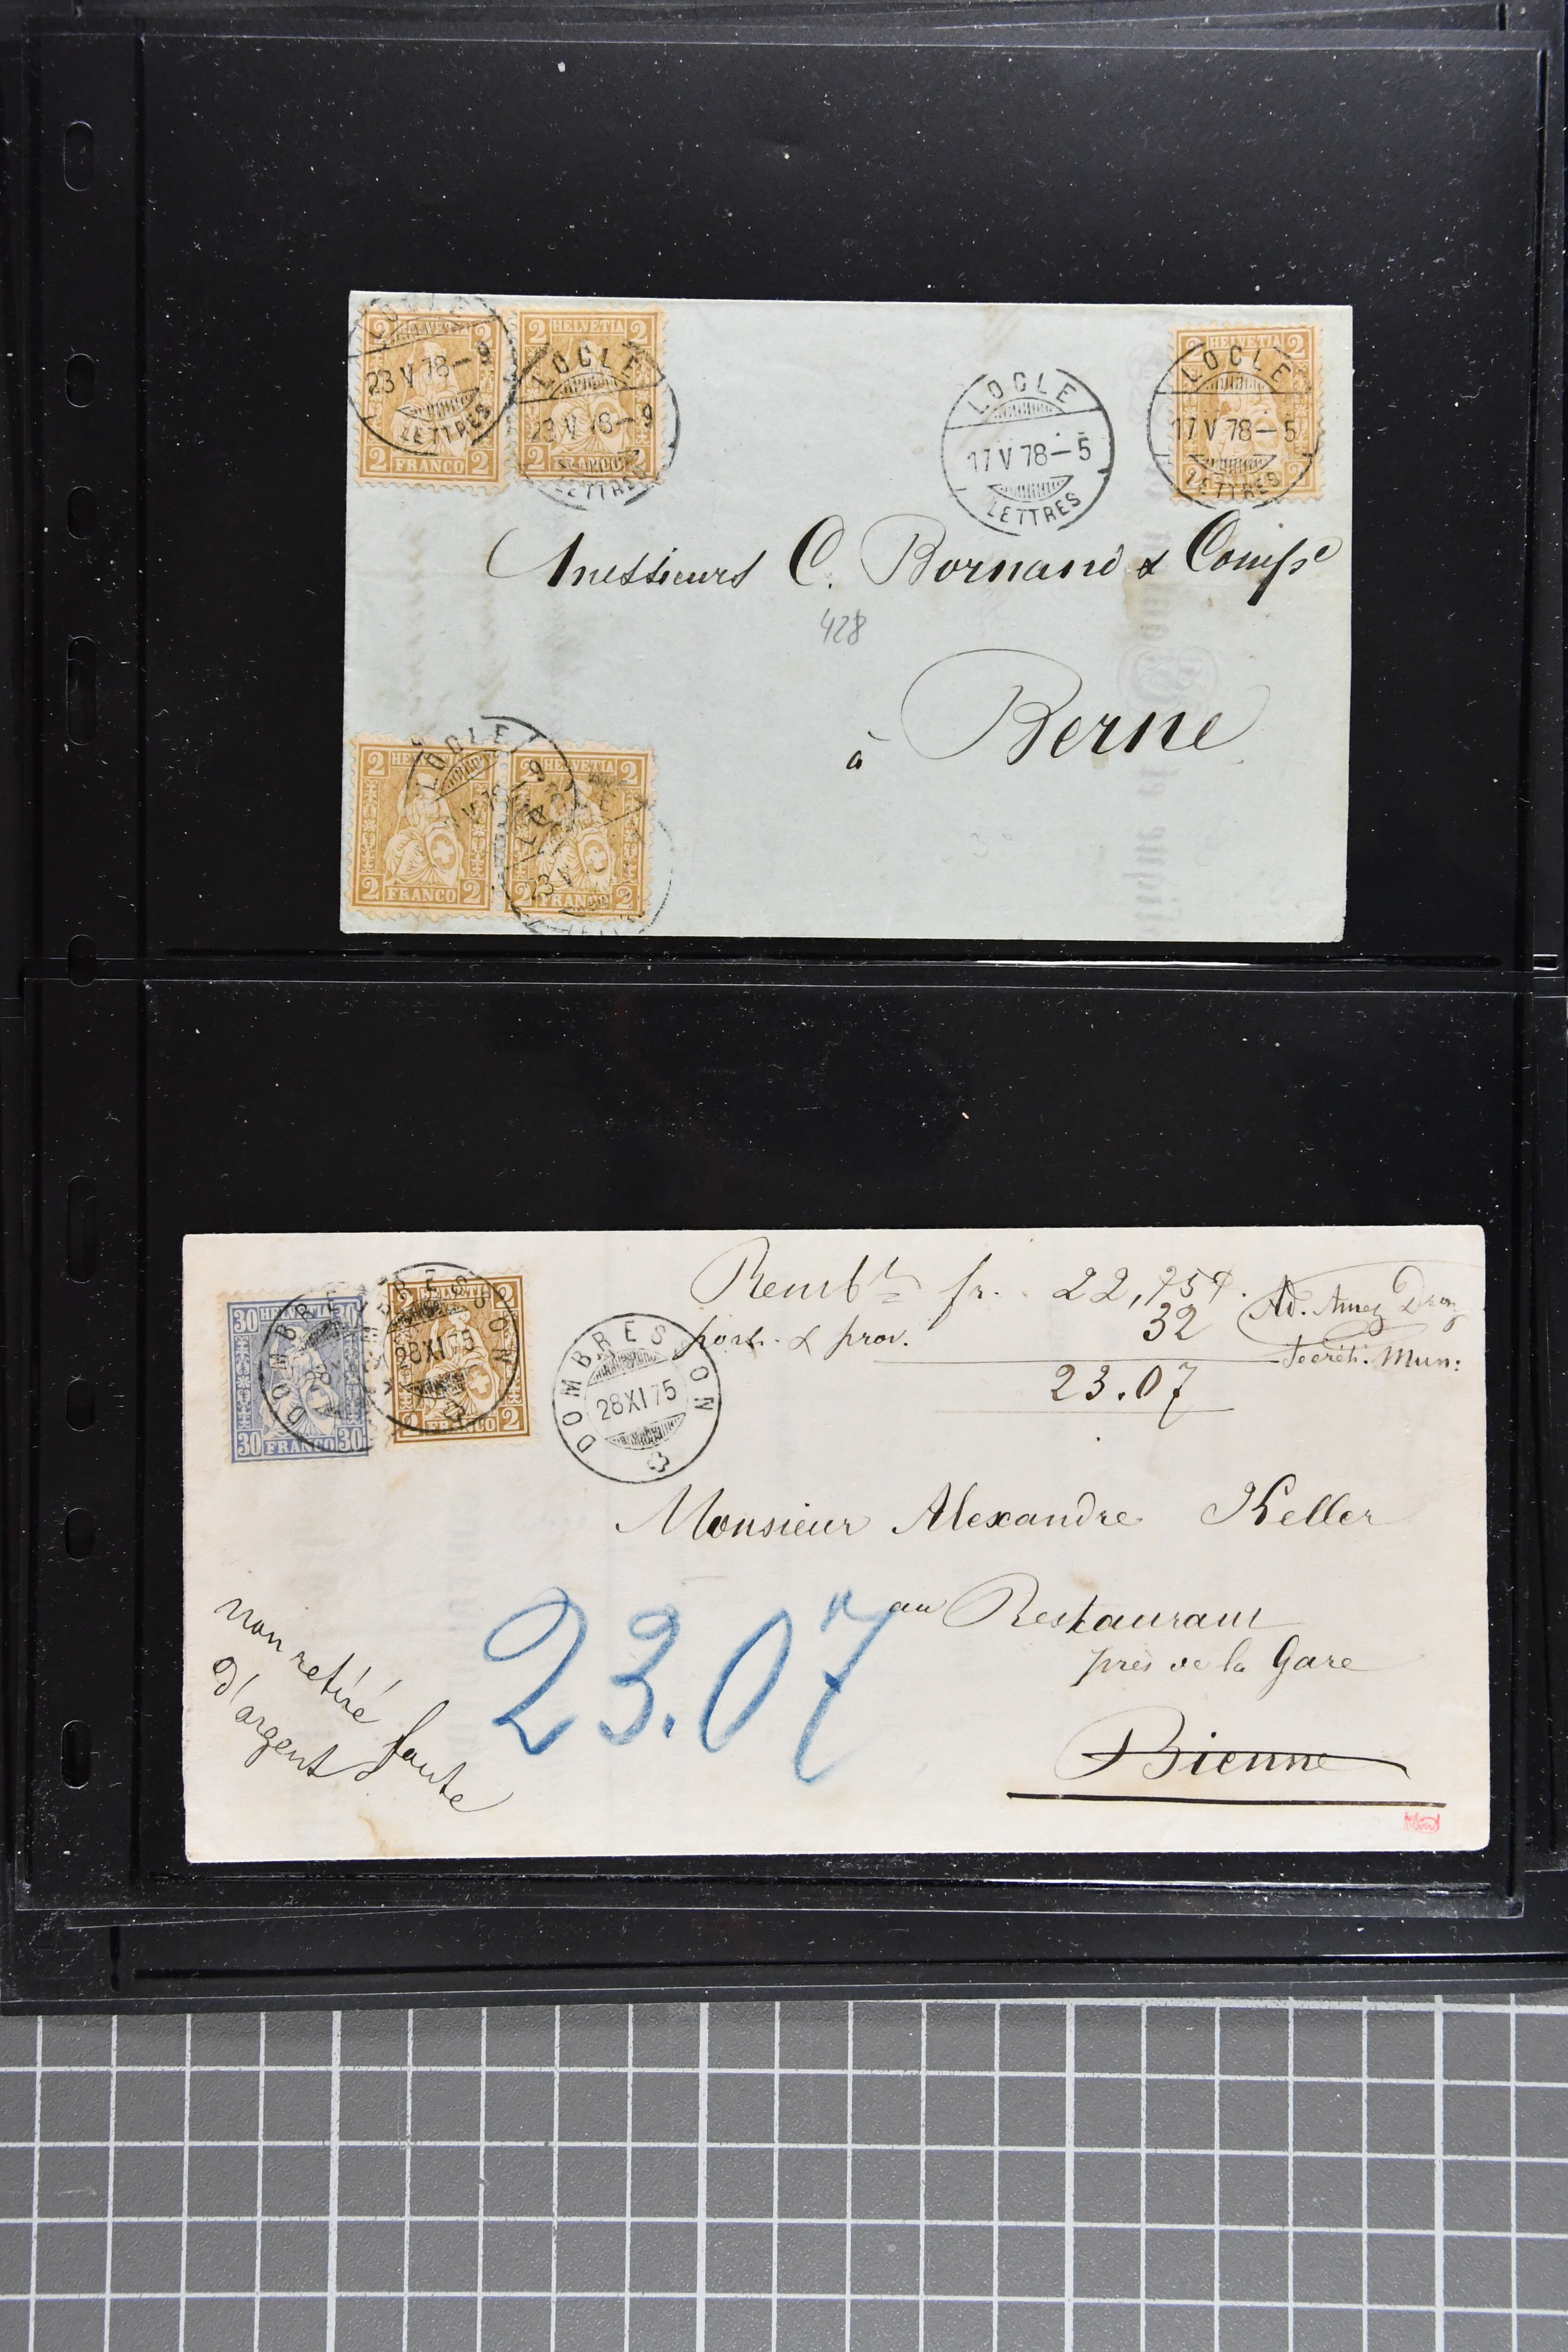 2 HELVETIA 2
LOCLE
23 V 78-9
LETTRES
2 FRANCO 2
2 HELVETIA 2
LOCLE
23 V 78-9
LETTRES
2 FRANCO 2
LOCLE
17 V 78-5
LETTRES
2 HELVETIA 2
LOCLE
17 V 78-5
LETTRES
Messieurs C. Bornand & Compe
428
à Berne
2 HELVETIA 2
LOCLE
2 FRANCO 2
2 HELVETIA 2
23 V
2 FRANCO 2
30 HELVETIA 30
30 FRANCO 30
DOMBRESSON
28 XI 75
2 FRANCO 2
DOMBRESSON
28 XI 75
Rembt fr. 22,75
port. & prov. 32
23.07
Ad. Amez Droz
Secrét. Mun:
Monsieur Alexandre Keller
au Restaurant
près de la Gare
Bienne
23.07
non retiré faute
d'argent